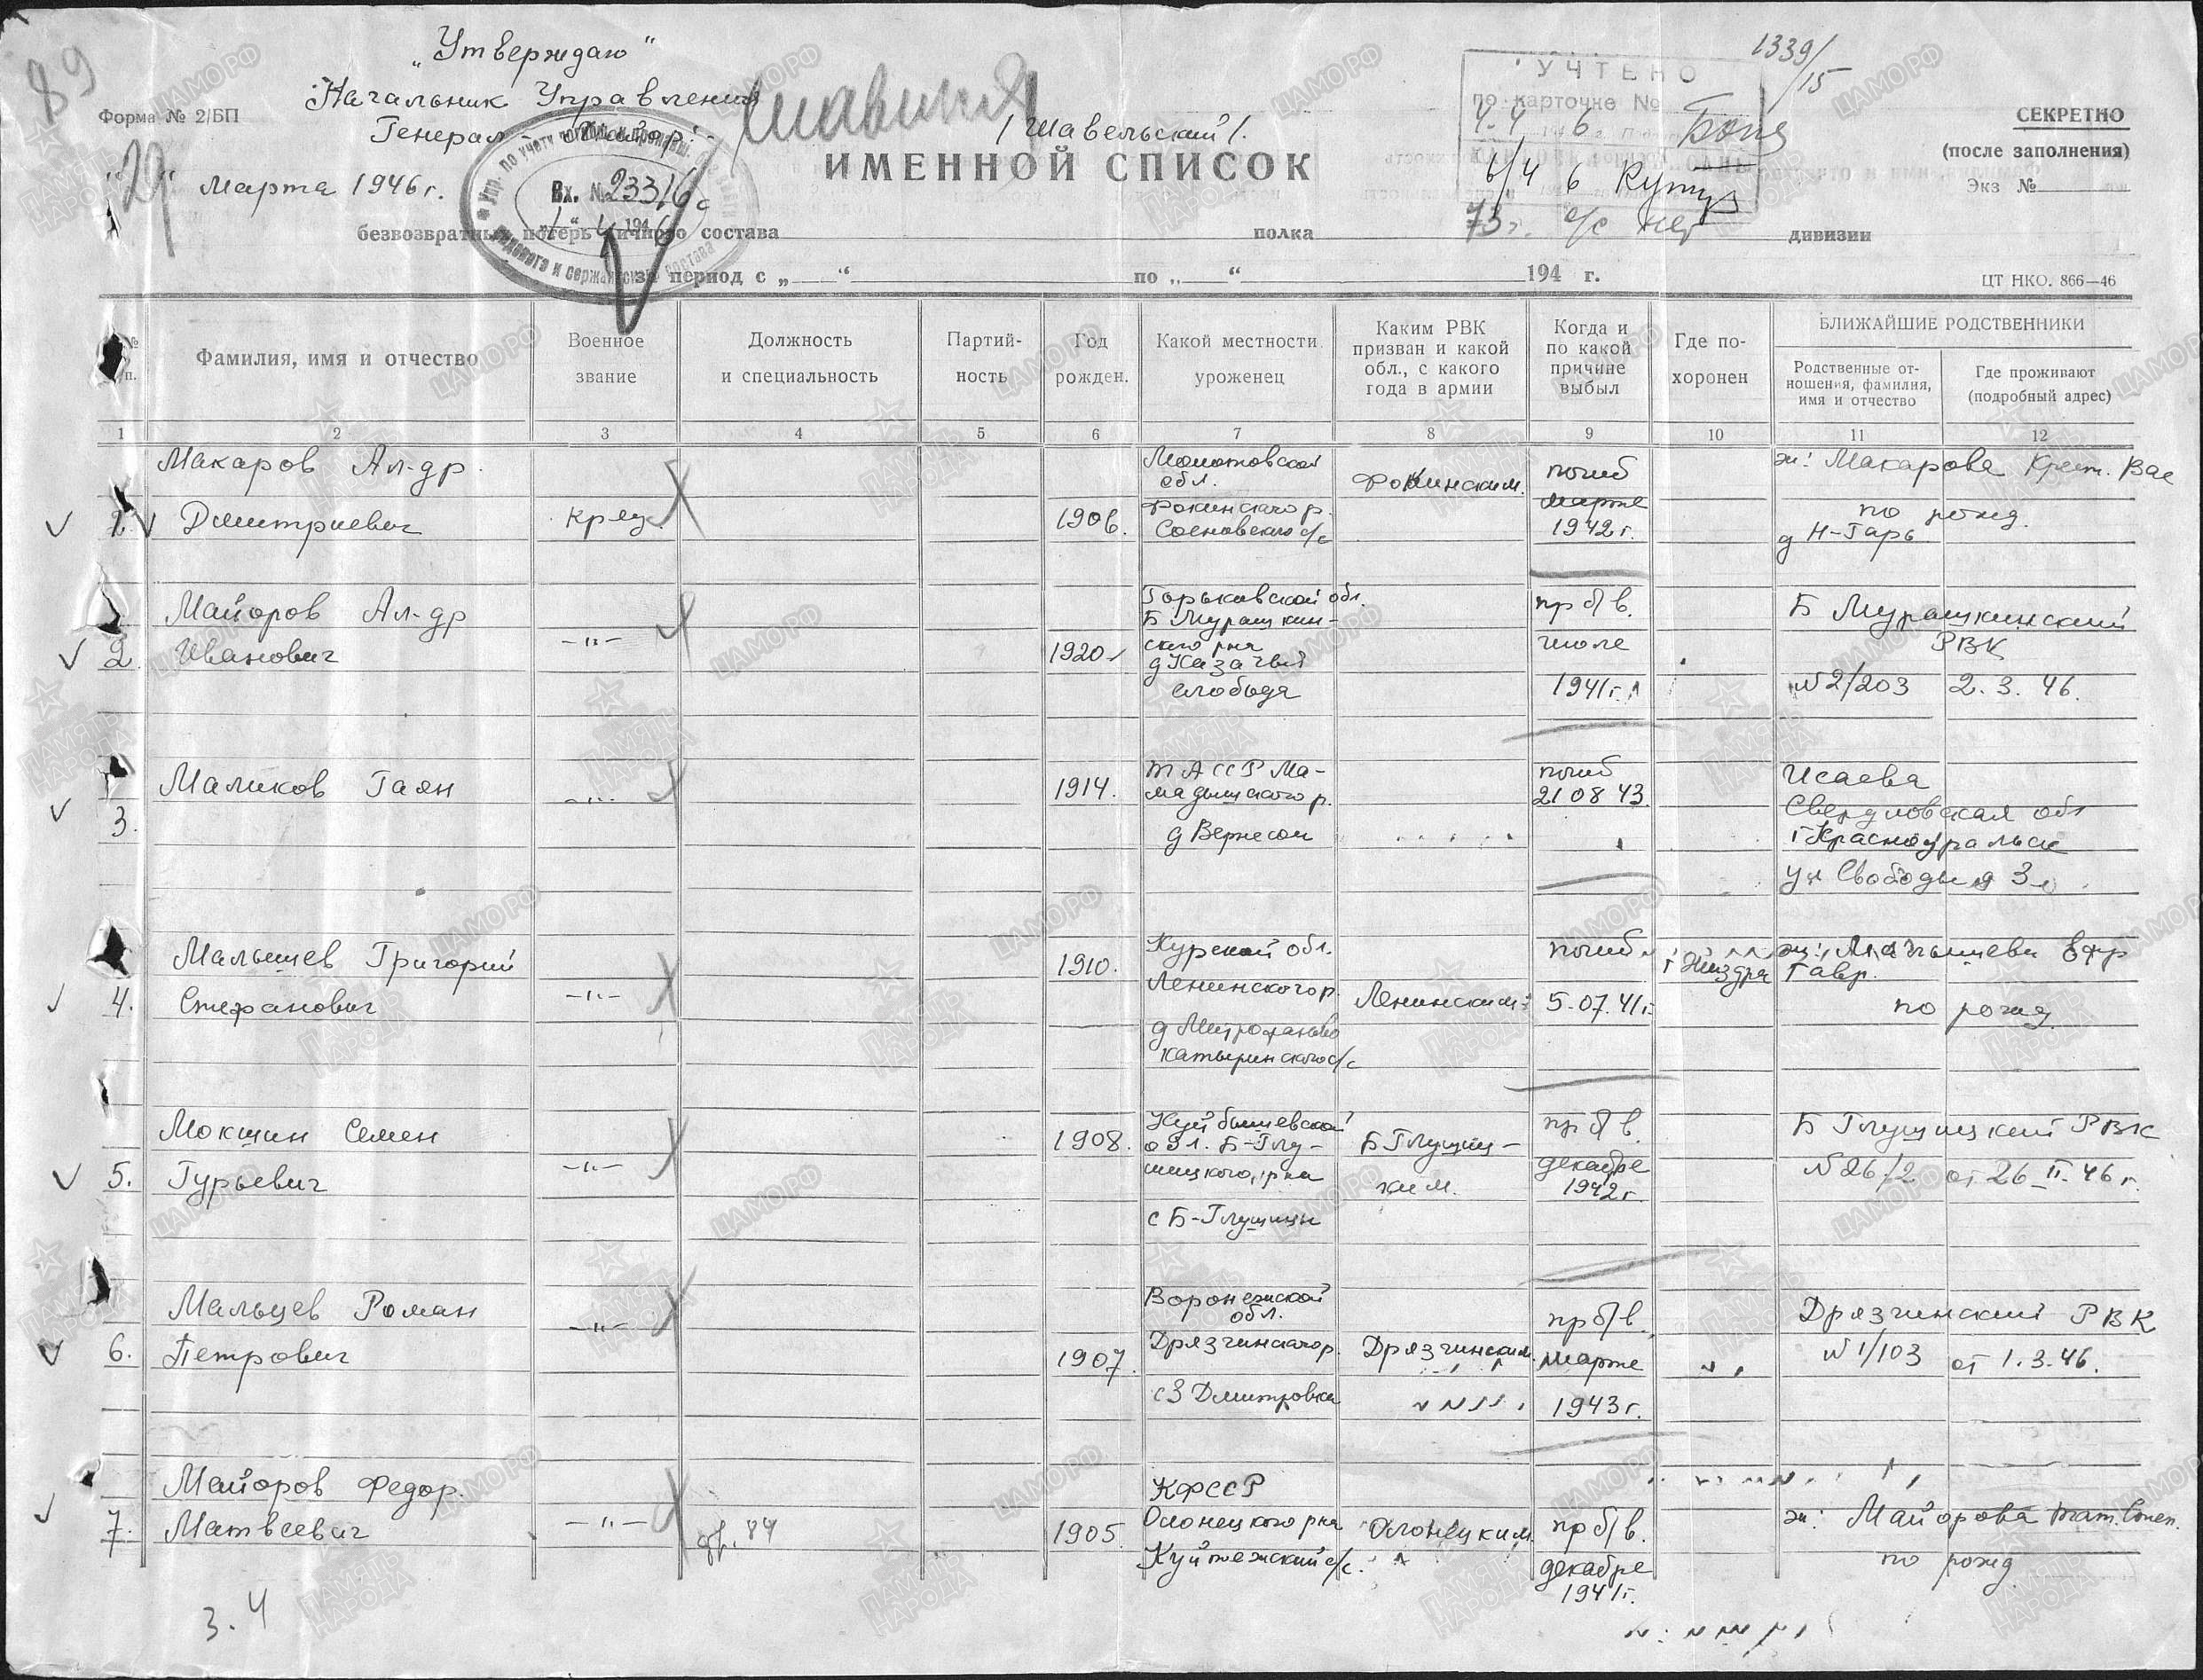 89
„Утверждаю"
Начальник Управления
Генерал-Майор
/Шавельский/.
1339/15
УЧТЕНО
по карточке №
4.4 6
6/4 6
73г.
Форма № 2/БП
СЕКРЕТНО
(после заполнения)
Экз №
"29" марта 1946 г.
Вх. № 23316с
ИМЕННОЙ СПИСОК
безвозвратных потерь личного состава полка дивизии
за период с „ “ по „ “ 194 г.
ЦТ НКО. 866—46
№ п.
Фамилия, имя и отчество
Военное звание
Должность и специальность
Партий-ность
Год рожден.
Какой местности уроженец
Каким РВК призван и какой обл., с какого года в армии
Когда и по какой причине выбыл
Где по-хоронен
БЛИЖАЙШИЕ РОДСТВЕННИКИ
Родственные от-ношения, фамилия, имя и отчество
Где проживают (подробный адрес)
1 2 3 4 5 6 7 8 9 10 11 12
Макаров Ал-др.
Дмитриевич
кр-ец
1906.
Молотовской
обл.
Фокинского р.
Сосновского с/с
Фокинским.
погиб
марте
1942 г.
ж: Макарова Крест. Вас
по рожд.
д Н-Гарь
2. Майоров Ал-др
Иванович
—"—
1920
Горьковской обл.
Б Мурашкин-
ского рна
д Казачья
слобода
пр б/в.
июле
1941 г.
Б Мурашкинский
РВК
№2/203 2. 3. 46.
3. Маликов Гаян
—"—
1914.
ТАССР Ма-
мадышского р.
погиб
21 08 43
Исаева
Свердловская обл
г Красноуральск
ул Свободы д 3
4. Малышев Григорий
Стефанович
—"—
1910.
Курской обл.
Ленинского р.
д Митрофаново
Ленинским
погиб
5.07.41г.
г Жиздра
ж: Малышева Ефр
Гавр.
по рожд.
5. Мокшин Семен
Гурьевич
—"—
1908.
Куйбышевской
обл. Б-Глу-
шицкого, рна
с Б-Глушицы
Б Глушиц-
ким.
пр б/в.
декабре
1942 г.
Б Глушицкий РВК
№26/2 от 26.II.46 г.
6. Мальцев Роман
Петрович
—"—
1907.
Воронежской
обл.
Дрязгинского р.
с З Дмитровка
Дрязгинским.
пр б/в.
марте
1943 г.
Дрязгинский РВК
№1/103 от 1.3.46.
7. Майоров Федор.
Матвеевич
—"—
1905.
КФССР
Олонецкого рна
Куйтежский с/с.
Олонецким.
пр б/в.
декабре
1941г.
ж: Майорова Тат. Степ.
по рожд.
3.4
ЦАМО РФ
ПАМЯТЬ НАРОДА